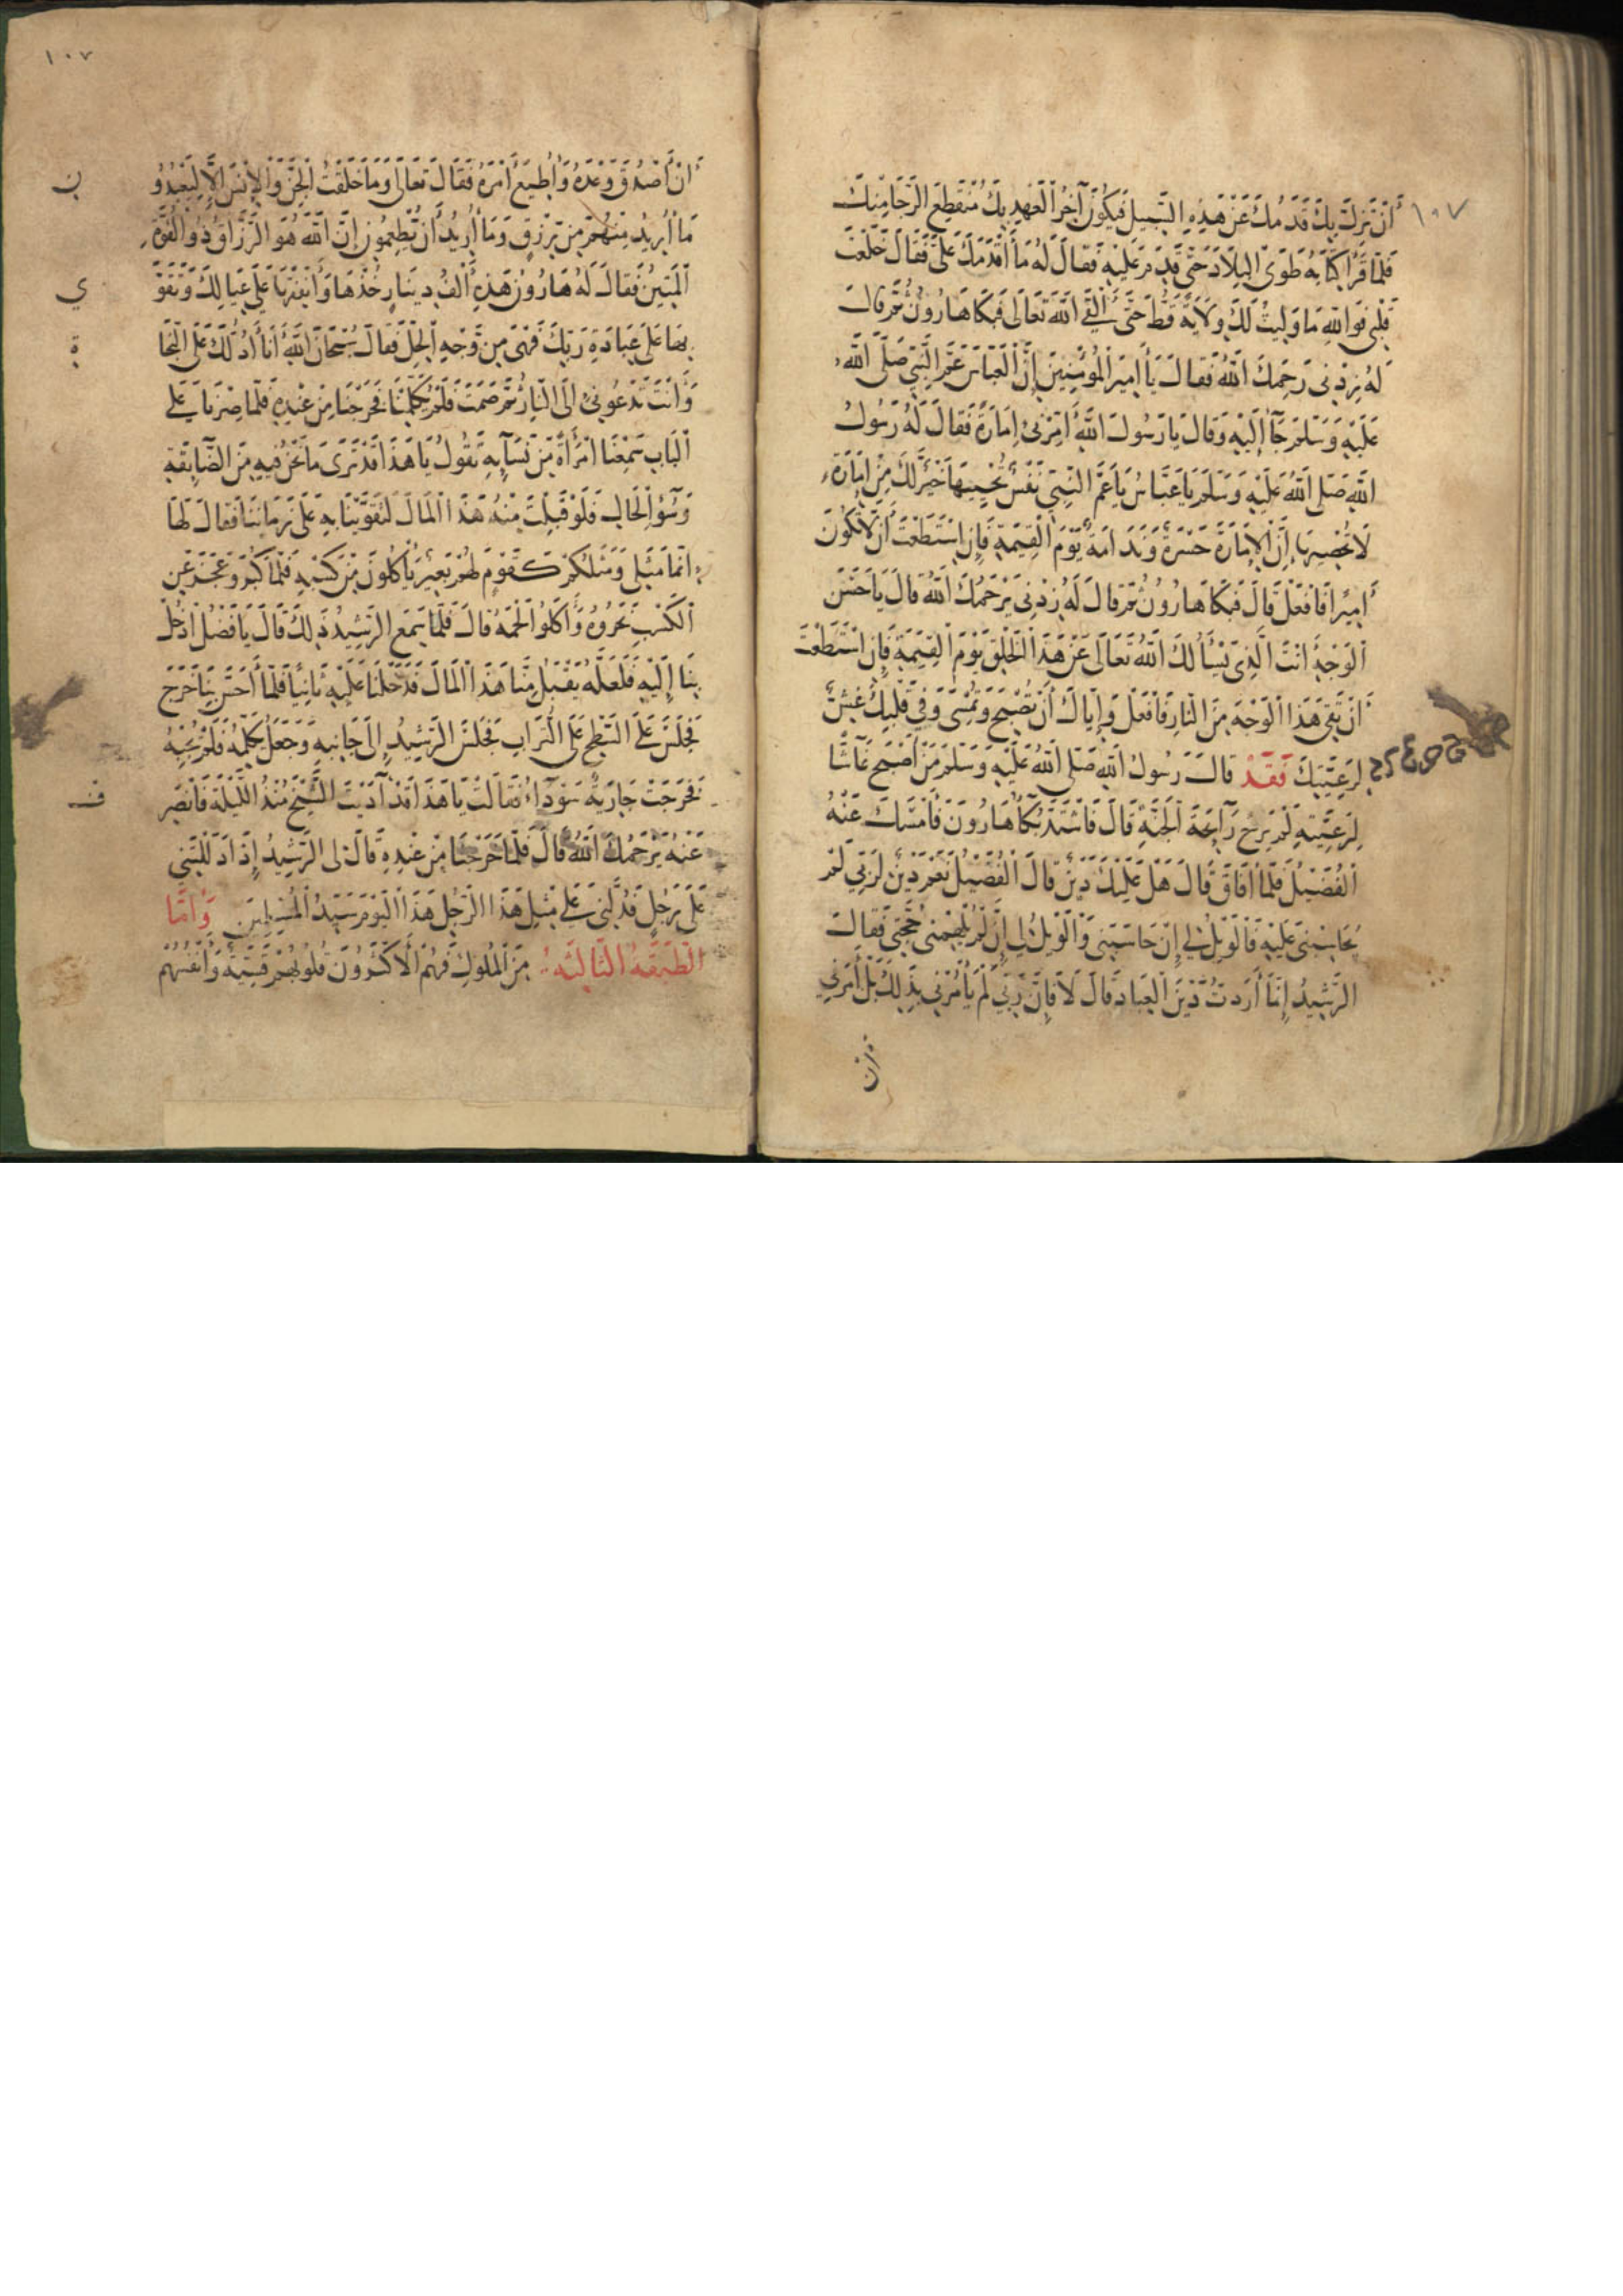 ١٠٧
أَنْ تَزِلَّ بِكَ قَدَمُكَ عَنْ هَذِهِ السَّبِيلِ فَيَكُونَ آخِرُ الْعَهْدِ بِكَ مُنْقَطِعَ الرَّجَا مِنْكَ
فَلَمَّا قَرَأَ كِتَابَهُ طَوَى الْبِلَادَ حَتَّى قَدِمَ عَلَيْهِ فَقَالَ لَهُ مَا أَقْدَمَكَ عَلَيَّ فَقَالَ خَلَعْتَ
قَلْبِي فَوَاللَّهِ مَا وَلِيتُ لَكَ وِلَايَةً قَطُّ حَتَّى أَلْقَى اللَّهَ تَعَالَى فَبَكَا هَارُونُ ثُمَّ قَالَ
لَهُ زِدْنِي رَحِمَكَ اللَّهُ فَقَالَ يَا أَمِيرَ الْمُؤْمِنِينَ إِنَّ الْعَبَّاسَ عَمَّ النَّبِيِّ صَلَّى اللَّهُ
عَلَيْهِ وَسَلَّمَ جَاءَ إِلَيْهِ وَقَالَ يَا رَسُولَ اللَّهِ أَمِّرْنِي إِمَارَةً فَقَالَ لَهُ رَسُولُ
اللَّهِ صَلَى اللَّهُ عَلَيْهِ وَسَلَّمَ يَا عَبَّاسُ يَا عَمَّ النَّبِيِّ نَفْسٌ تُحْيِيهَا خَيْرٌ لَكَ مِنْ إِمَارَةٍ
لَا تُحْصِيهَا إِنَّ الْإِمَارَةَ حَسْرَةٌ وَنَدَامَةٌ يَوْمَ الْقِيَمَةِ فَإِنِ اسْتَطَعْتَ أَنْ لَا تَكُونَ
أَمِيرًا فَافْعَلْ قَالَ فَبَكَا هَارُونُ ثُمَّ قَالَ لَهُ زِدْنِي يَرْحَمُكَ اللَّهُ قَالَ يَا حَسَنَ
الْوَجْهِ أَنْتَ الَّذِي يَسْأَلُكَ اللَّهُ تَعَالَى عَنْ هَذَا الْخَلْقِ يَوْمَ الْقِيَمَةِ فَإِنِ اسْتَطَعْتَ
أَنْ تَقِيَ هَذَا الْوَجْهَ مِنَ النَّارِ فَافْعَلْ وَإِيَّاكَ أَنْ تُصْبِحَ وَتُمْسَى وَفِي قَلْبِكَ غِشٌّ
لِرَعِيَّتِكَ فَقَدْ قَالَ رَسُولُ اللَّهِ صَلَى اللَّهُ عَلَيْهِ وَسَلَّمَ مَنْ أَصْبَحَ غَاشًّا
لِرَعِيَّتِهِ لَمْ يَرِحْ رَائِحَةَ الْجَنَّةِ قَالَ فَاشْتَدَّ بُكَاءُ هَارُونَ فَأَمْسَكَ عَنْهُ
الْفُضَيْلُ فَلَمَّا أَفَاقَ قَالَ هَلْ عَلَيْكَ دَيْنٌ قَالَ الْفُضَيْلُ نَعَمْ دَيْنٌ لِرَبِّي لَمْ
يُحَاسِبْنِي عَلَيْهِ فَالْوَيْلُ لِي إِنْ حَاسَبَنِي وَالْوَيْلُ لِي إِنْ لَمْ يُلْهِمْنِي حُجَّتِي فَقَالَ
الرَّشِيدُ إِنَّمَا أَرَدْتُ دَيْنَ الْعِبَادَ قَالَ لَا فَإِنَّ رَبِّي لَمْ يَأْمُرْنِي بِذَلِكَ بَلْ أَمَرَنِي
١٠٧
أَنْ أُصْدُقَ وَعْدَهُ وَأُطِيعَ أَمْرَهُ فَقَالَ تَعَالَى وَمَا خَلَقْتُ الْجِنَّ وَالْإِنْسَ إِلَّا لِيَعْبُدُونِ
مَا أُرِيدُ مِنْهُمْ مِنْ رِزْقٍ وَمَا أُرِيدُ أَنْ يُطْعِمُونِ إِنَّ اللَّهَ هُوَ الرَّزَّاقُ ذُو الْقُوَّةِ
الْمَتِينُ فَقَالَ لَهُ هَارُونُ هَذِهِ أَلْفُ دِينَارٍ خُذْهَا وَأَنْفِقْهَا عَلَى عِيَالِكَ وَتَقَوَّي
بِهَا عَلَى عِبَادَةِ رَبِّكَ فَهِيَ مِنْ وَجْهِ الْحِلِّ فَقَالَ سُبْحَانَ اللَّهِ أَنَا أَدُلُّكَ عَلَى النَّجَاة
وَأَنْتَ تَدْعُونِي إِلَى النَّارِ ثُمَّ صَمَتَ فَلَمْ يُكَلِّمْنَا فَخَرَجْنَا مِنْ عِنْدِهِ فَلَمَّا صِرْنَا عَلَى
الْبَابِ سَمِعْنَا امْرَأَةً مِنْ نِسَائِهِ تَقُولُ يَا هَذَا قَدْ تَرَى مَا نَحْنُ فِيهِ مِنَ الضَّايِقَةِ
وَسُوءِ الْحَالِ فَلَوْ قَبِلْتَ مِنْهُ هَذَا الْمَالَ لَتَقَوَّيْنَا بِهِ عَلَى زَمَانِنَا فَقَالَ لَهَا
إِنَّمَا مَثَلِي وَمَثَلُكُمْ كَقَوْمٍ لَهُمْ بَعِيرٌ يَأْكُلُونَ مِنْ كَسْبِهِ فَلَمَّا كَبُرَ وَعَجَزَ عَنِ
الْكَسْبِ نَحَرُوهُ وَأَكَلُوا لَحْمَهُ قَالَ فَلَمَّا سَمِعَ الرَّشِيدُ ذَلِكَ قَالَ يَا فَضْلُ ادْخُلْ
بِنَا إِلَيْهِ فَلَعَلَّهُ يَقْبَلُ مِنَّا هَذَا الْمَالَ فَدَخَلْنَا عَلَيْهِ ثَانِيًا فَلَمَّا أَحَسَّ بِنَا خَرَجَ
فَجَلَسَ عَلَى السَّطْحِ عَلَى التُّرَابِ فَجَلَسَ الرَّشِيدُ إِلَى جَانِبِهِ وَجَعَلَ يُكَلِّمُهُ فَلَمْ يُجِبْهُ
فَخَرَجَتْ جَارِيَةٌ سَوْدَاءُ فَقَالَتْ يَا هَذَا قَدْ آذَيْتَ الشَّيْخَ مُنْذُ اللَّيْلَةِ فَانْصَرِف
عَنْهُ يَرْحَمُكَ اللَّهُ قَالَ فَلَمَّا خَرَجْنَا مِنْ عِنْدِهِ قَالَ لِي الرَّشِيدُ إِذَا دَلَلْتَنِي
عَلَى رَجُلٍ فَدُلَّنِي عَلَى مِثْلِ هَذَا الرَّجُلِ هَذَا الْيَوْمَ سَيِّدُ الْمُسْلِمِينَ وَأَمَّا
الطَّبَقَةُ الثَّالِثَةُ مِنَ الْمُلُوكِ فَهُمُ الْأَكْثَرُونَ قُلُوبُهُمْ قَسِيَّةٌ وَأَنْفُسُهُمْ